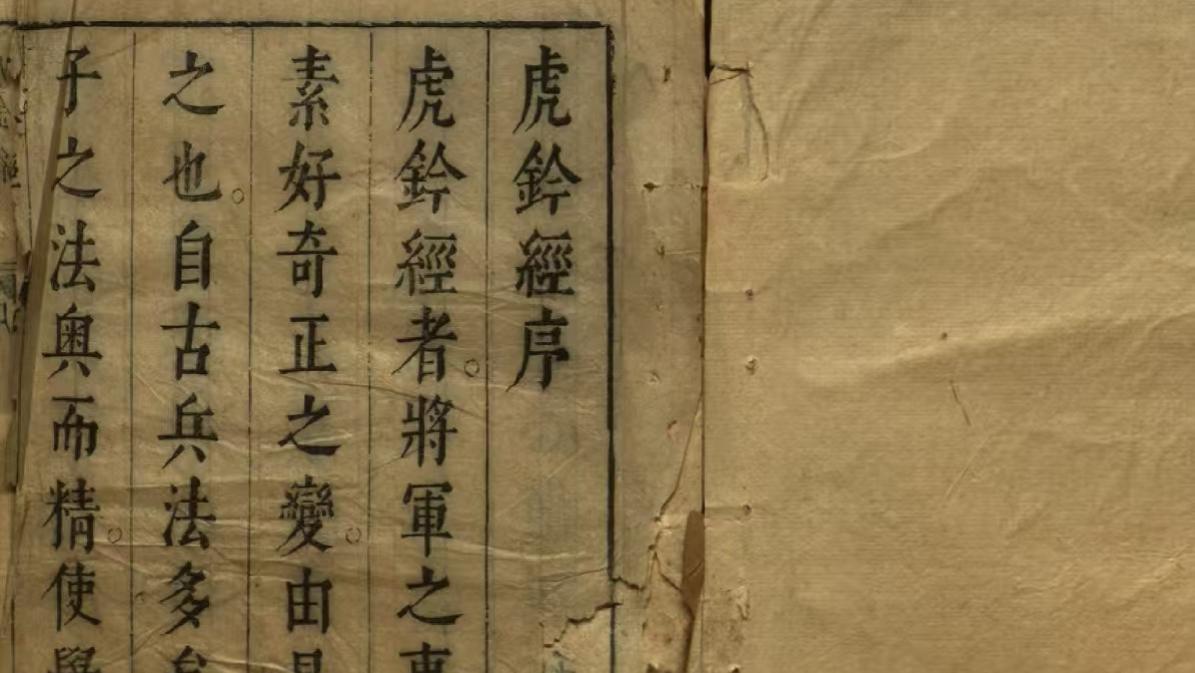 虎鈐經序
虎鈐經者。將軍之
素好奇正之變。由
之也。自古兵法多
子之法奧而精。使學